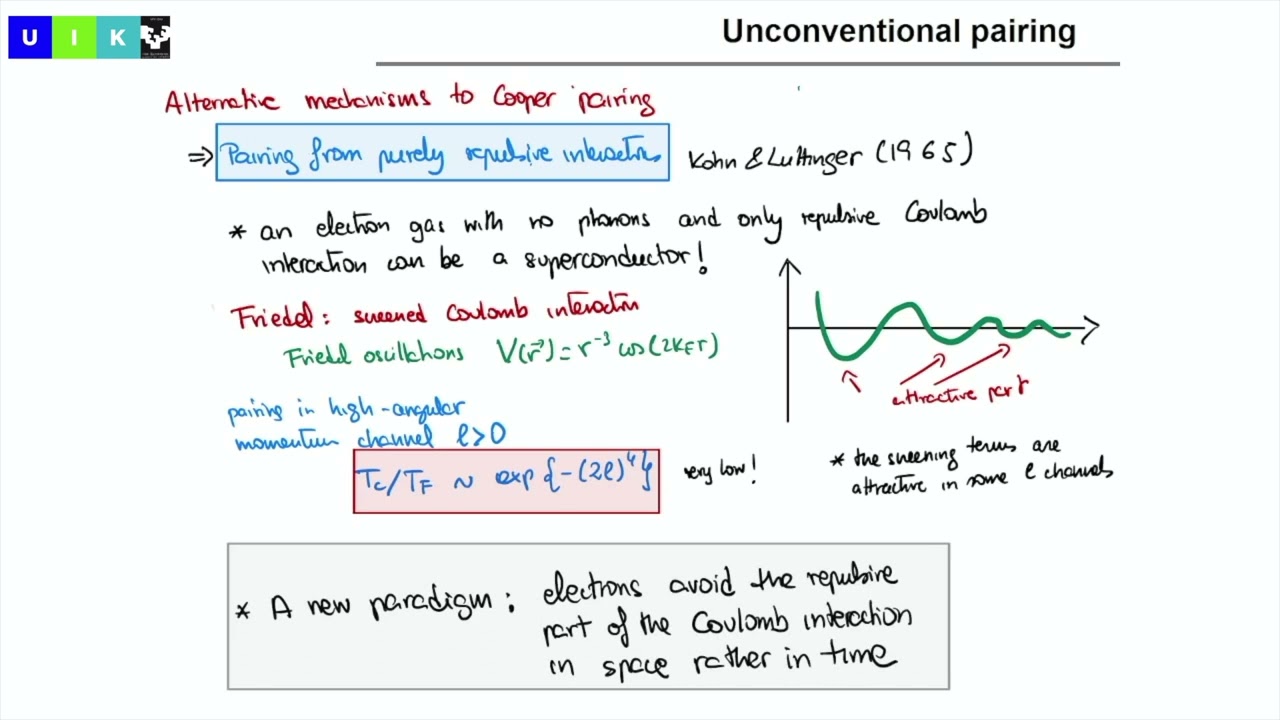 U I K
Unconventional pairing
Alternative mechanisms to Cooper pairing
⇒ Pairing from purely repulsive interactions Kohn & Luttinger (1965)
* an electron gas with no phonons and only repulsive Coulomb
interaction can be a superconductor!
Friedel: screened Coulomb interaction
Friedel oscillations V(r⃗) = r⁻³ cos(2k_F r)
attractive part
pairing in high-angular
momentum channel l>0
Tc/TF ~ exp{-(2l)⁴} very low!
* the screening terms are
attractive in some l channels
* A new paradigm: electrons avoid the repulsive
part of the Coulomb interaction
in space rather in time